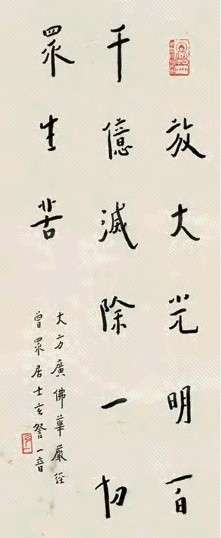 放大光明百
千億滅除一切
眾生苦
大方廣佛華嚴經
居士玄詧一音